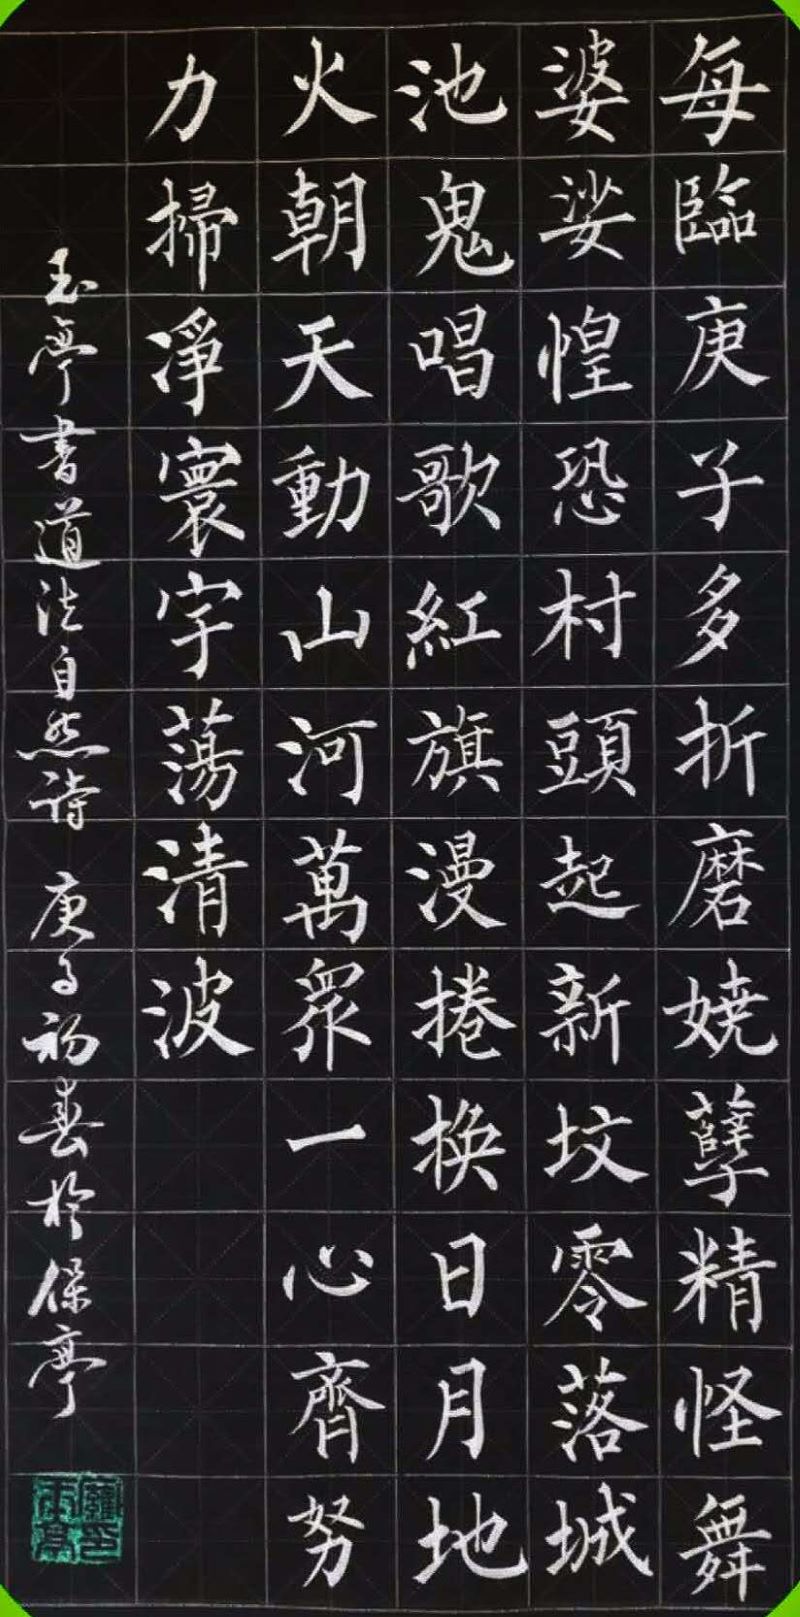 每臨庚子多折磨嬈孽精怪舞
婆娑惶恐村頭起新坟零落城
池鬼唱歌紅旗漫捲換日月地
火朝天動山河萬眾一心齊努
力掃淨寰宇蕩清波
玉亭書道法自然詩 庚子初春於保亭